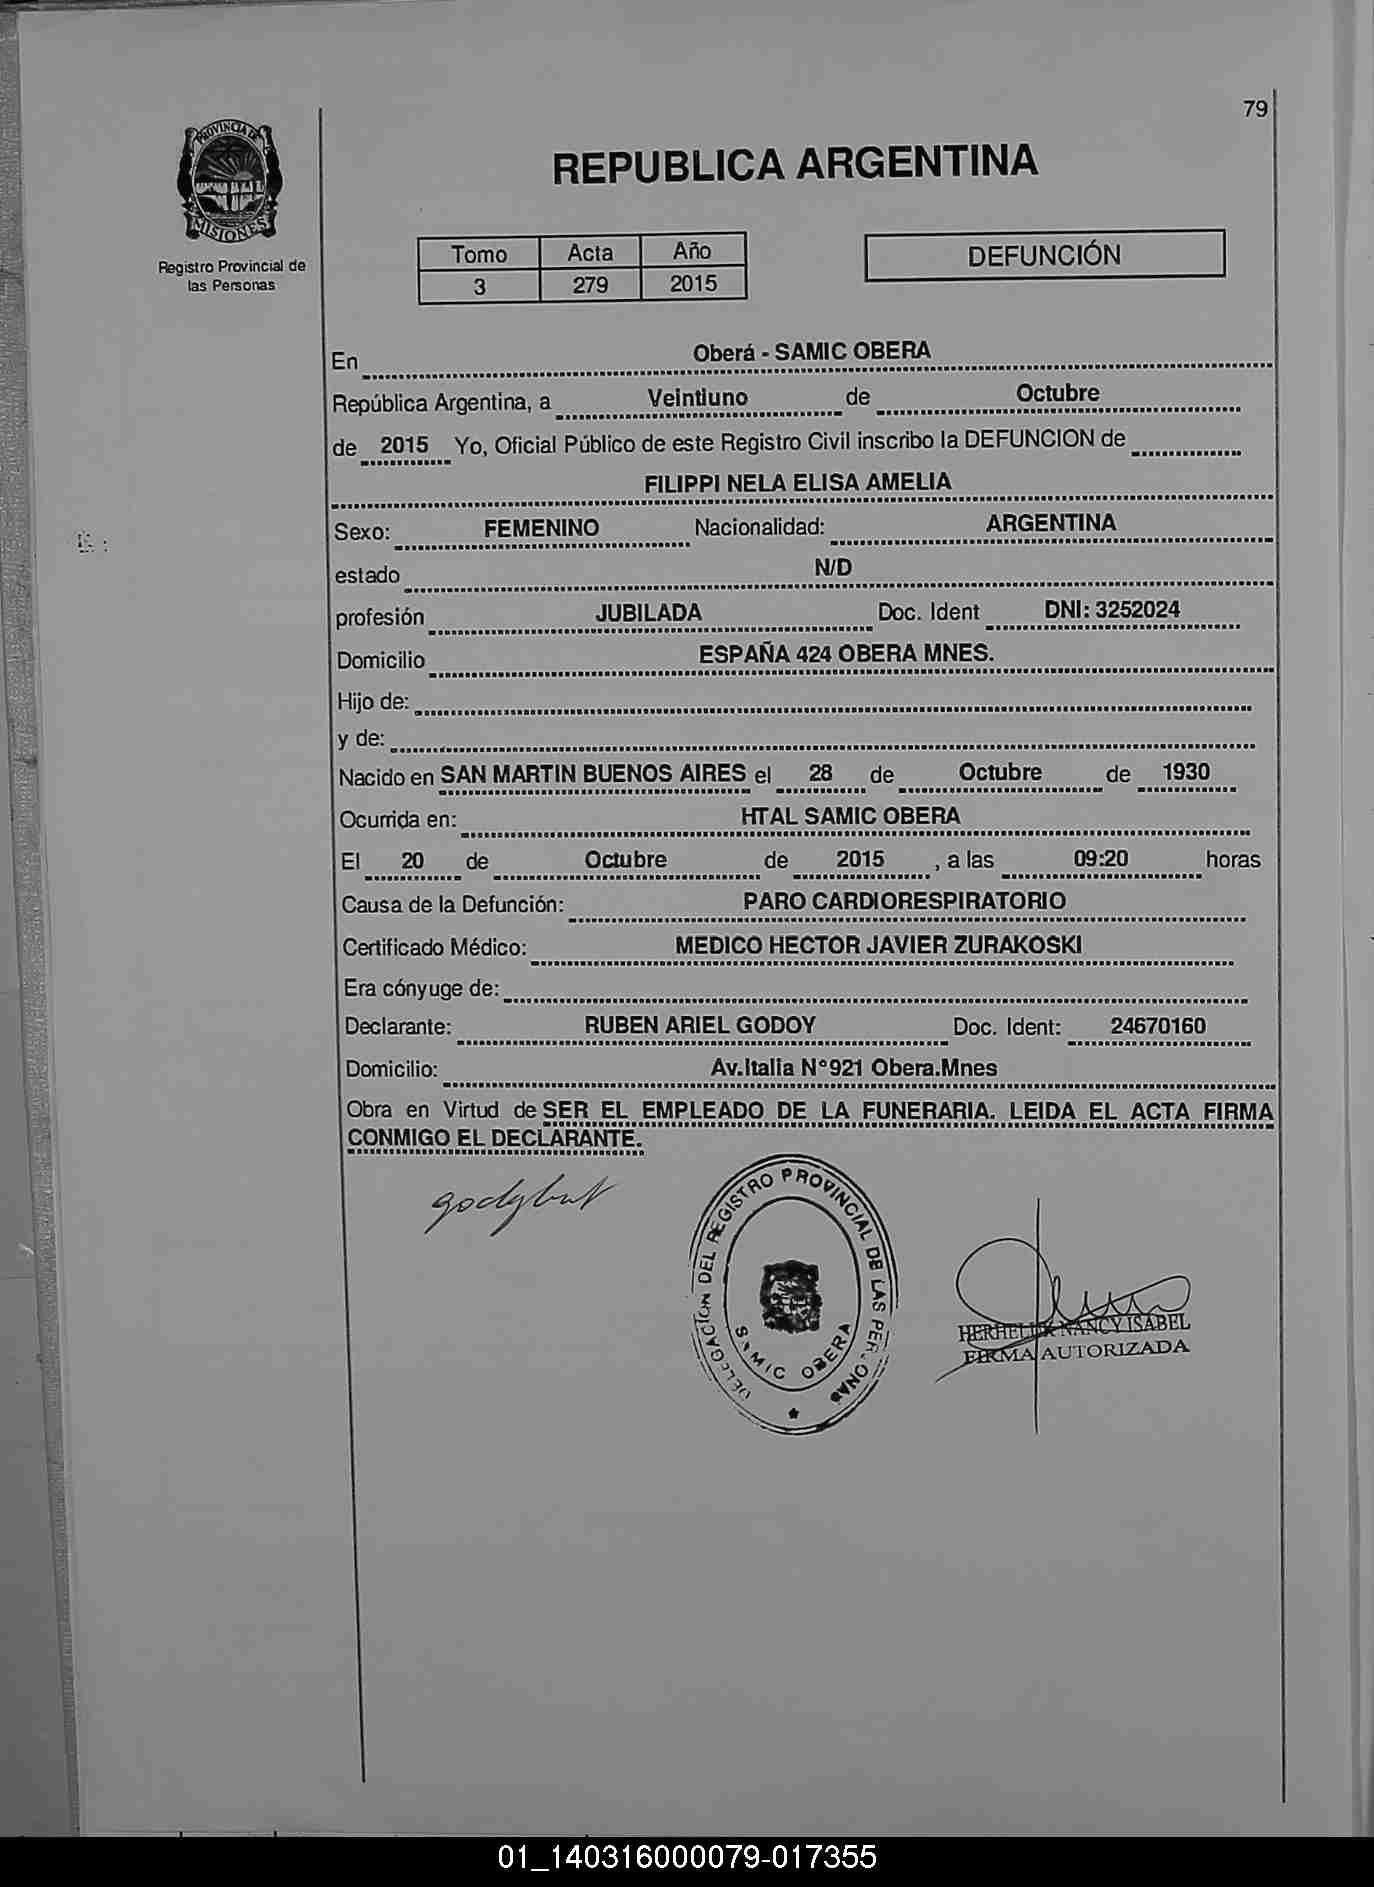 79
PROVINCIA DE
MISIONES
Registro Provincial de
las Personas
REPUBLICA ARGENTINA
Tomo Acta Año
3 279 2015
DEFUNCIÓN
En Oberá - SAMIC OBERA
República Argentina, a Veintiuno de Octubre
de 2015 Yo, Oficial Público de este Registro Civil inscribo la DEFUNCION de
FILIPPI NELA ELISA AMELIA
Sexo: FEMENINO Nacionalidad: ARGENTINA
estado N/D
profesión JUBILADA Doc. Ident DNI: 3252024
Domicilio ESPAÑA 424 OBERA MNES.
Hijo de:
y de:
Nacido en SAN MARTIN BUENOS AIRES el 28 de Octubre de 1930
Ocurrida en: HTAL SAMIC OBERA
El 20 de Octubre de 2015 , a las 09:20 horas
Causa de la Defunción: PARO CARDIORESPIRATORIO
Certificado Médico: MEDICO HECTOR JAVIER ZURAKOSKI
Era cónyuge de:
Declarante: RUBEN ARIEL GODOY Doc. Ident: 24670160
Domicilio: Av.Italia N°921 Obera.Mnes
Obra en Virtud de SER EL EMPLEADO DE LA FUNERARIA. LEIDA EL ACTA FIRMA
CONMIGO EL DECLARANTE.
DELEGACION DEL REGISTRO PROVINCIAL DE LAS PERSONAS
SAMIC OBERA
NANCY ISABEL
FIRMA AUTORIZADA
01_140316000079-017355